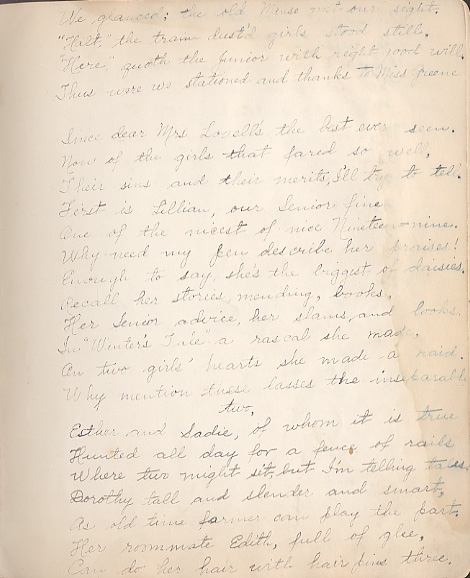 We glanced; the old Manse met our sight.
"Halt," the tram dust'd girls stood still.
"Here," quoth the Junior with right good will.
Thus were we stationed and thanks to Miss Greene
Since dear Mrs Lovell's the best ever seen.
Now of the girls that fared so well,
Their sins and their merits, I'll try to tell.
First is Lillian, our Senior fine
One of the nicest of nice Nineteen-nine.
Why need my pen describe her praises!
Enough to say, she's the biggest of daisies.
Recall her stories, mending, books,
Her Senior advice, her slams, and looks.
In "Winter's Tale" a rascal she made,
On two girls' hearts she made a raid.
Why mention these lasses the inseparable
two,
Esther and Sadie, of whom it is true
Hunted all day for a fence of rails
Where two might sit, but I'm telling tales
Dorothy tall and slender and smart,
As old time farmer can play the part.
Her roommate Edith, full of glee,
Can do her hair with hair pins three.